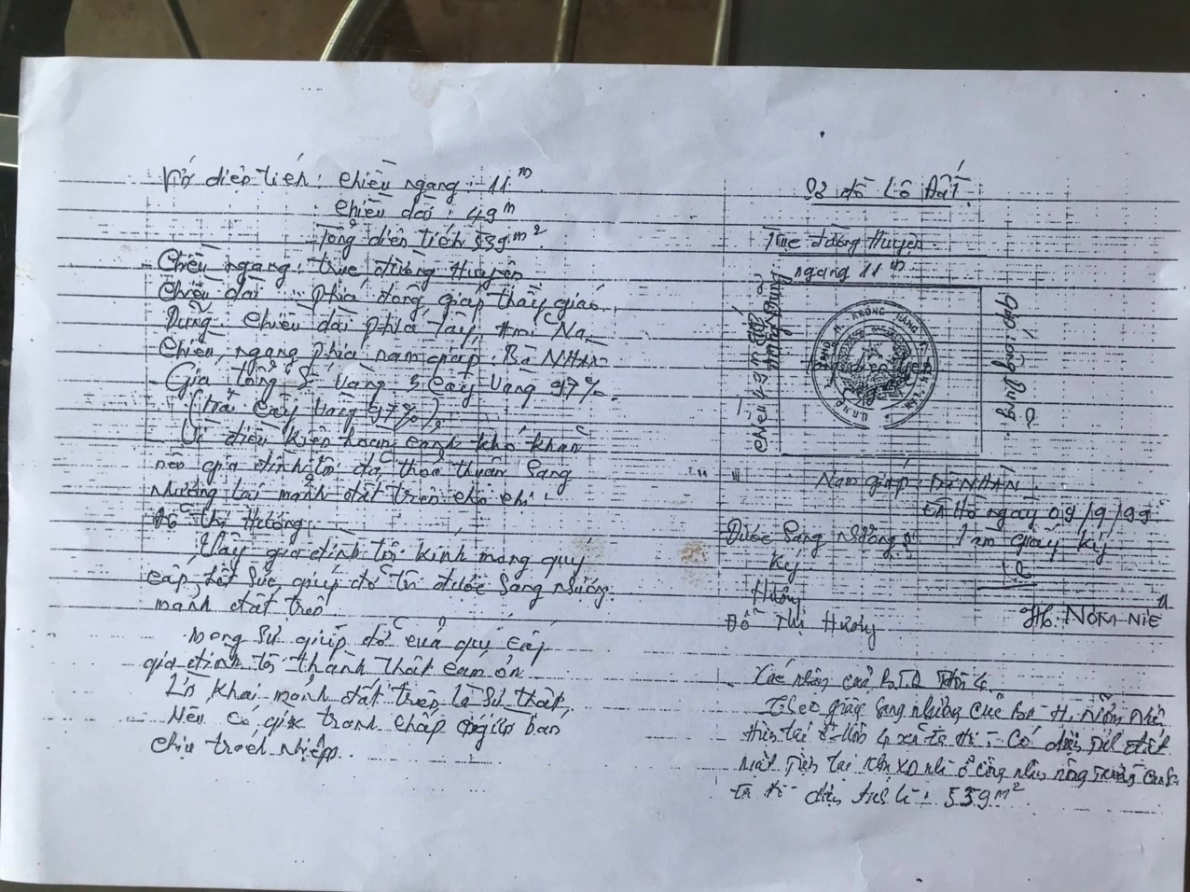 Với diện tích: chiều ngang: 11m
chiều dài: 49m
Tổng diện tích 539m²
Chiều ngang: trục đường Huyện
Chiều dài phía đông giáp thầy giáo
Dũng. chiều dài phía Tây Ami Na
Chiều ngang phía nam giáp. Bà NHAN
Giá tổng số vàng 5 cây vàng 97%
(trả cây vàng 97%)
Vì điều kiện hoàn cảnh khó khăn
nên gia đình tôi đã thỏa thuận sang
nhượng lại mảnh đất trên cho chị
Đỗ Thị Hương.
Vậy gia đình tôi kính mong quý
cấp hết sức giúp đỡ tôi được sang nhượng
mảnh đất trên
Mong sự giúp đỡ của quý cấp
gia đình tôi thành thật cảm ơn
Lời khai mảnh đất trên là sự thật
Nếu có gì tranh chấp người bán
chịu trách nhiệm
Sơ đồ Lô Đất
Trục đường Huyện
ngang 11m
Giáp ông Dũng
Nam giáp Bà NHAN
Ea Hồ ngày 09/9/99
Được Sang nhượng
Làm giấy ký
Ký
Hương
Đỗ Thị Hương
H. NÔM NIÊ
Xác nhận của B.T.Q thôn 4
Theo giấy sang nhượng của bà H. Nôm Niê
hiện tại ở thôn 4 xã Ea Hồ. Có diện tích đất
diện tích là: 539m²